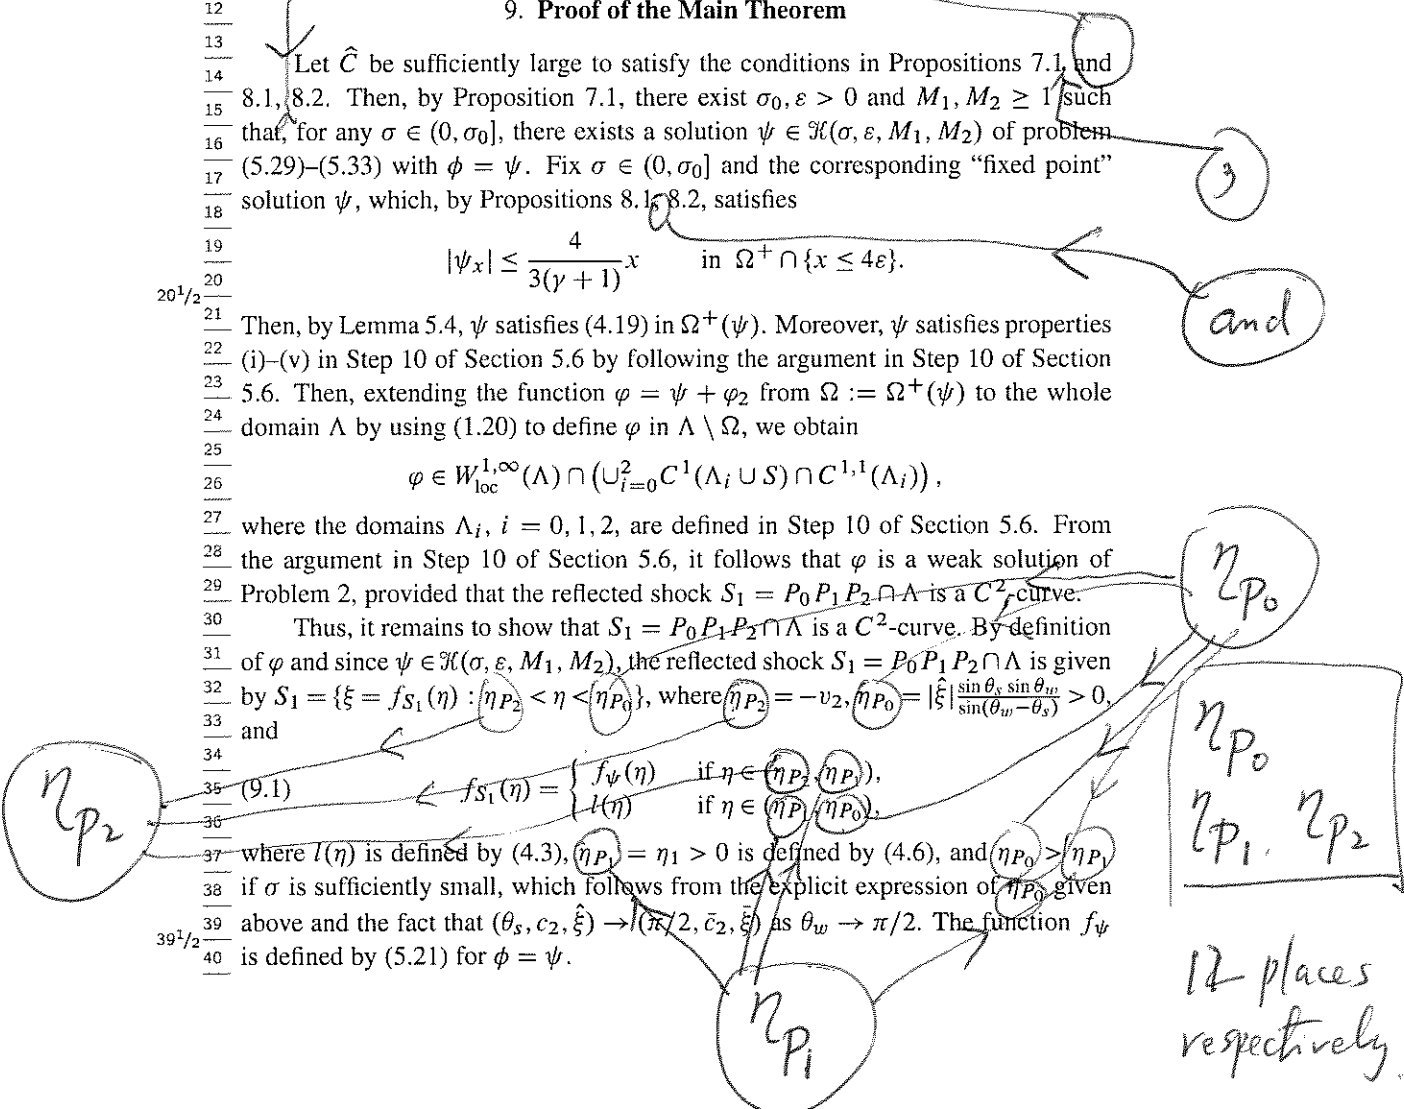 12
9. Proof of the Main Theorem
13
14 Let Ĉ be sufficiently large to satisfy the conditions in Propositions 7.1 and
15 8.1, 8.2. Then, by Proposition 7.1, there exist σ₀, ε > 0 and M₁, M₂ ≥ 1 such
16 that, for any σ ∈ (0, σ₀], there exists a solution ψ ∈ 𝒦(σ, ε, M₁, M₂) of problem
17 (5.29)–(5.33) with φ = ψ. Fix σ ∈ (0, σ₀] and the corresponding “fixed point”
,
18 solution ψ, which, by Propositions 8.1, 8.2, satisfies
19 |ψ_x| ≤ \frac{4}{3(γ + 1)} x in Ω⁺ ∩ {x ≤ 4ε}.
20
20 1/2
and
21 Then, by Lemma 5.4, ψ satisfies (4.19) in Ω⁺(ψ). Moreover, ψ satisfies properties
22 (i)–(v) in Step 10 of Section 5.6 by following the argument in Step 10 of Section
23 5.6. Then, extending the function φ = ψ + φ₂ from Ω := Ω⁺(ψ) to the whole
24 domain Λ by using (1.20) to define φ in Λ \ Ω, we obtain
25
26 φ ∈ W^{1,∞}_{loc}(Λ) ∩ (∪²_{i=0} C¹(Λ_i ∪ S) ∩ C^{1,1}(Λ_i)),
27 where the domains Λ_i, i = 0, 1, 2, are defined in Step 10 of Section 5.6. From
28 the argument in Step 10 of Section 5.6, it follows that φ is a weak solution of
29 Problem 2, provided that the reflected shock S₁ = P₀P₁P₂ ∩ Λ is a C²-curve.
η_{P₀}
30 Thus, it remains to show that S₁ = P₀P₁P₂ ∩ Λ is a C²-curve. By definition
31 of φ and since ψ ∈ 𝒦(σ, ε, M₁, M₂), the reflected shock S₁ = P₀P₁P₂ ∩ Λ is given
32 by S₁ = {ξ = f_{S₁}(η) : η_{P₂} < η < η_{P₀}}, where η_{P₂} = −v₂, η_{P₀} = |ξ̂| \frac{sin θ_s sin θ_w}{sin(θ_w−θ_s)} > 0,
33 and
34
η_{P₀}
35 (9.1) f_{S₁}(η) = { f_ψ(η) if η ∈ (η_{P₂}, η_{P₁}),
36 l(η) if η ∈ (η_{P₁}, η_{P₀}),
η_{P₂}
η_{P₁}. η_{P₂}
37 where l(η) is defined by (4.3), η_{P₁} = η₁ > 0 is defined by (4.6), and η_{P₀} > η_{P₁}
38 if σ is sufficiently small, which follows from the explicit expression of η_{P₀} given
39 above and the fact that (θ_s, c₂, ξ̂) → (π/2, c̄₂, ξ̄) as θ_w → π/2. The function f_ψ
39 1/2
40 is defined by (5.21) for φ = ψ.
η_{P₁}
12 places
respectively.